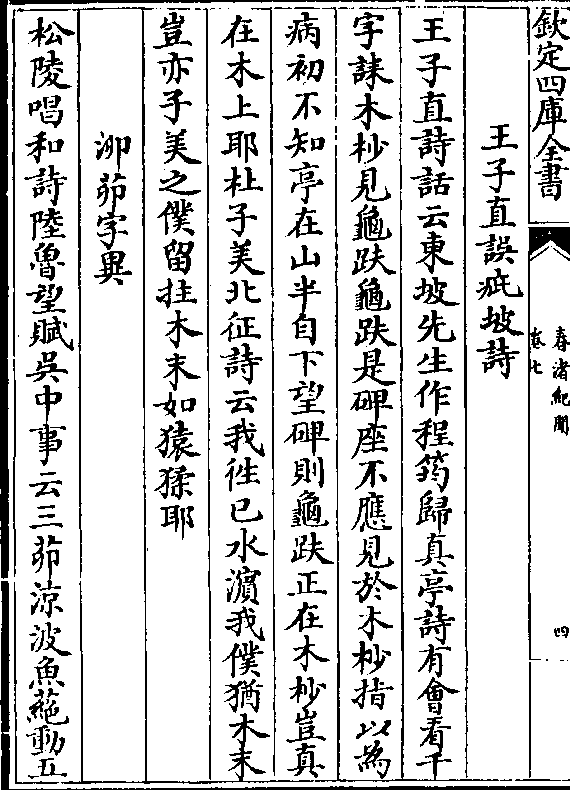 欽定四庫全書
春渚紀聞
卷七
四
王子直誤疵坡詩
王子直詩話云東坡先生作程筠歸真亭詩有會看千
字誄木杪見龜趺龜趺是碑座不應見於木杪指以為
病初不知亭在山半自下望碑則龜趺正在木杪豈真
在木上耶杜子美北征詩云我徃已水濵我僕猶木末
豈亦子美之僕留拄木末如猿猱耶
泖茆字異
松陵唱和詩陸魯望賦吳中事云三茆涼波魚蕝動五